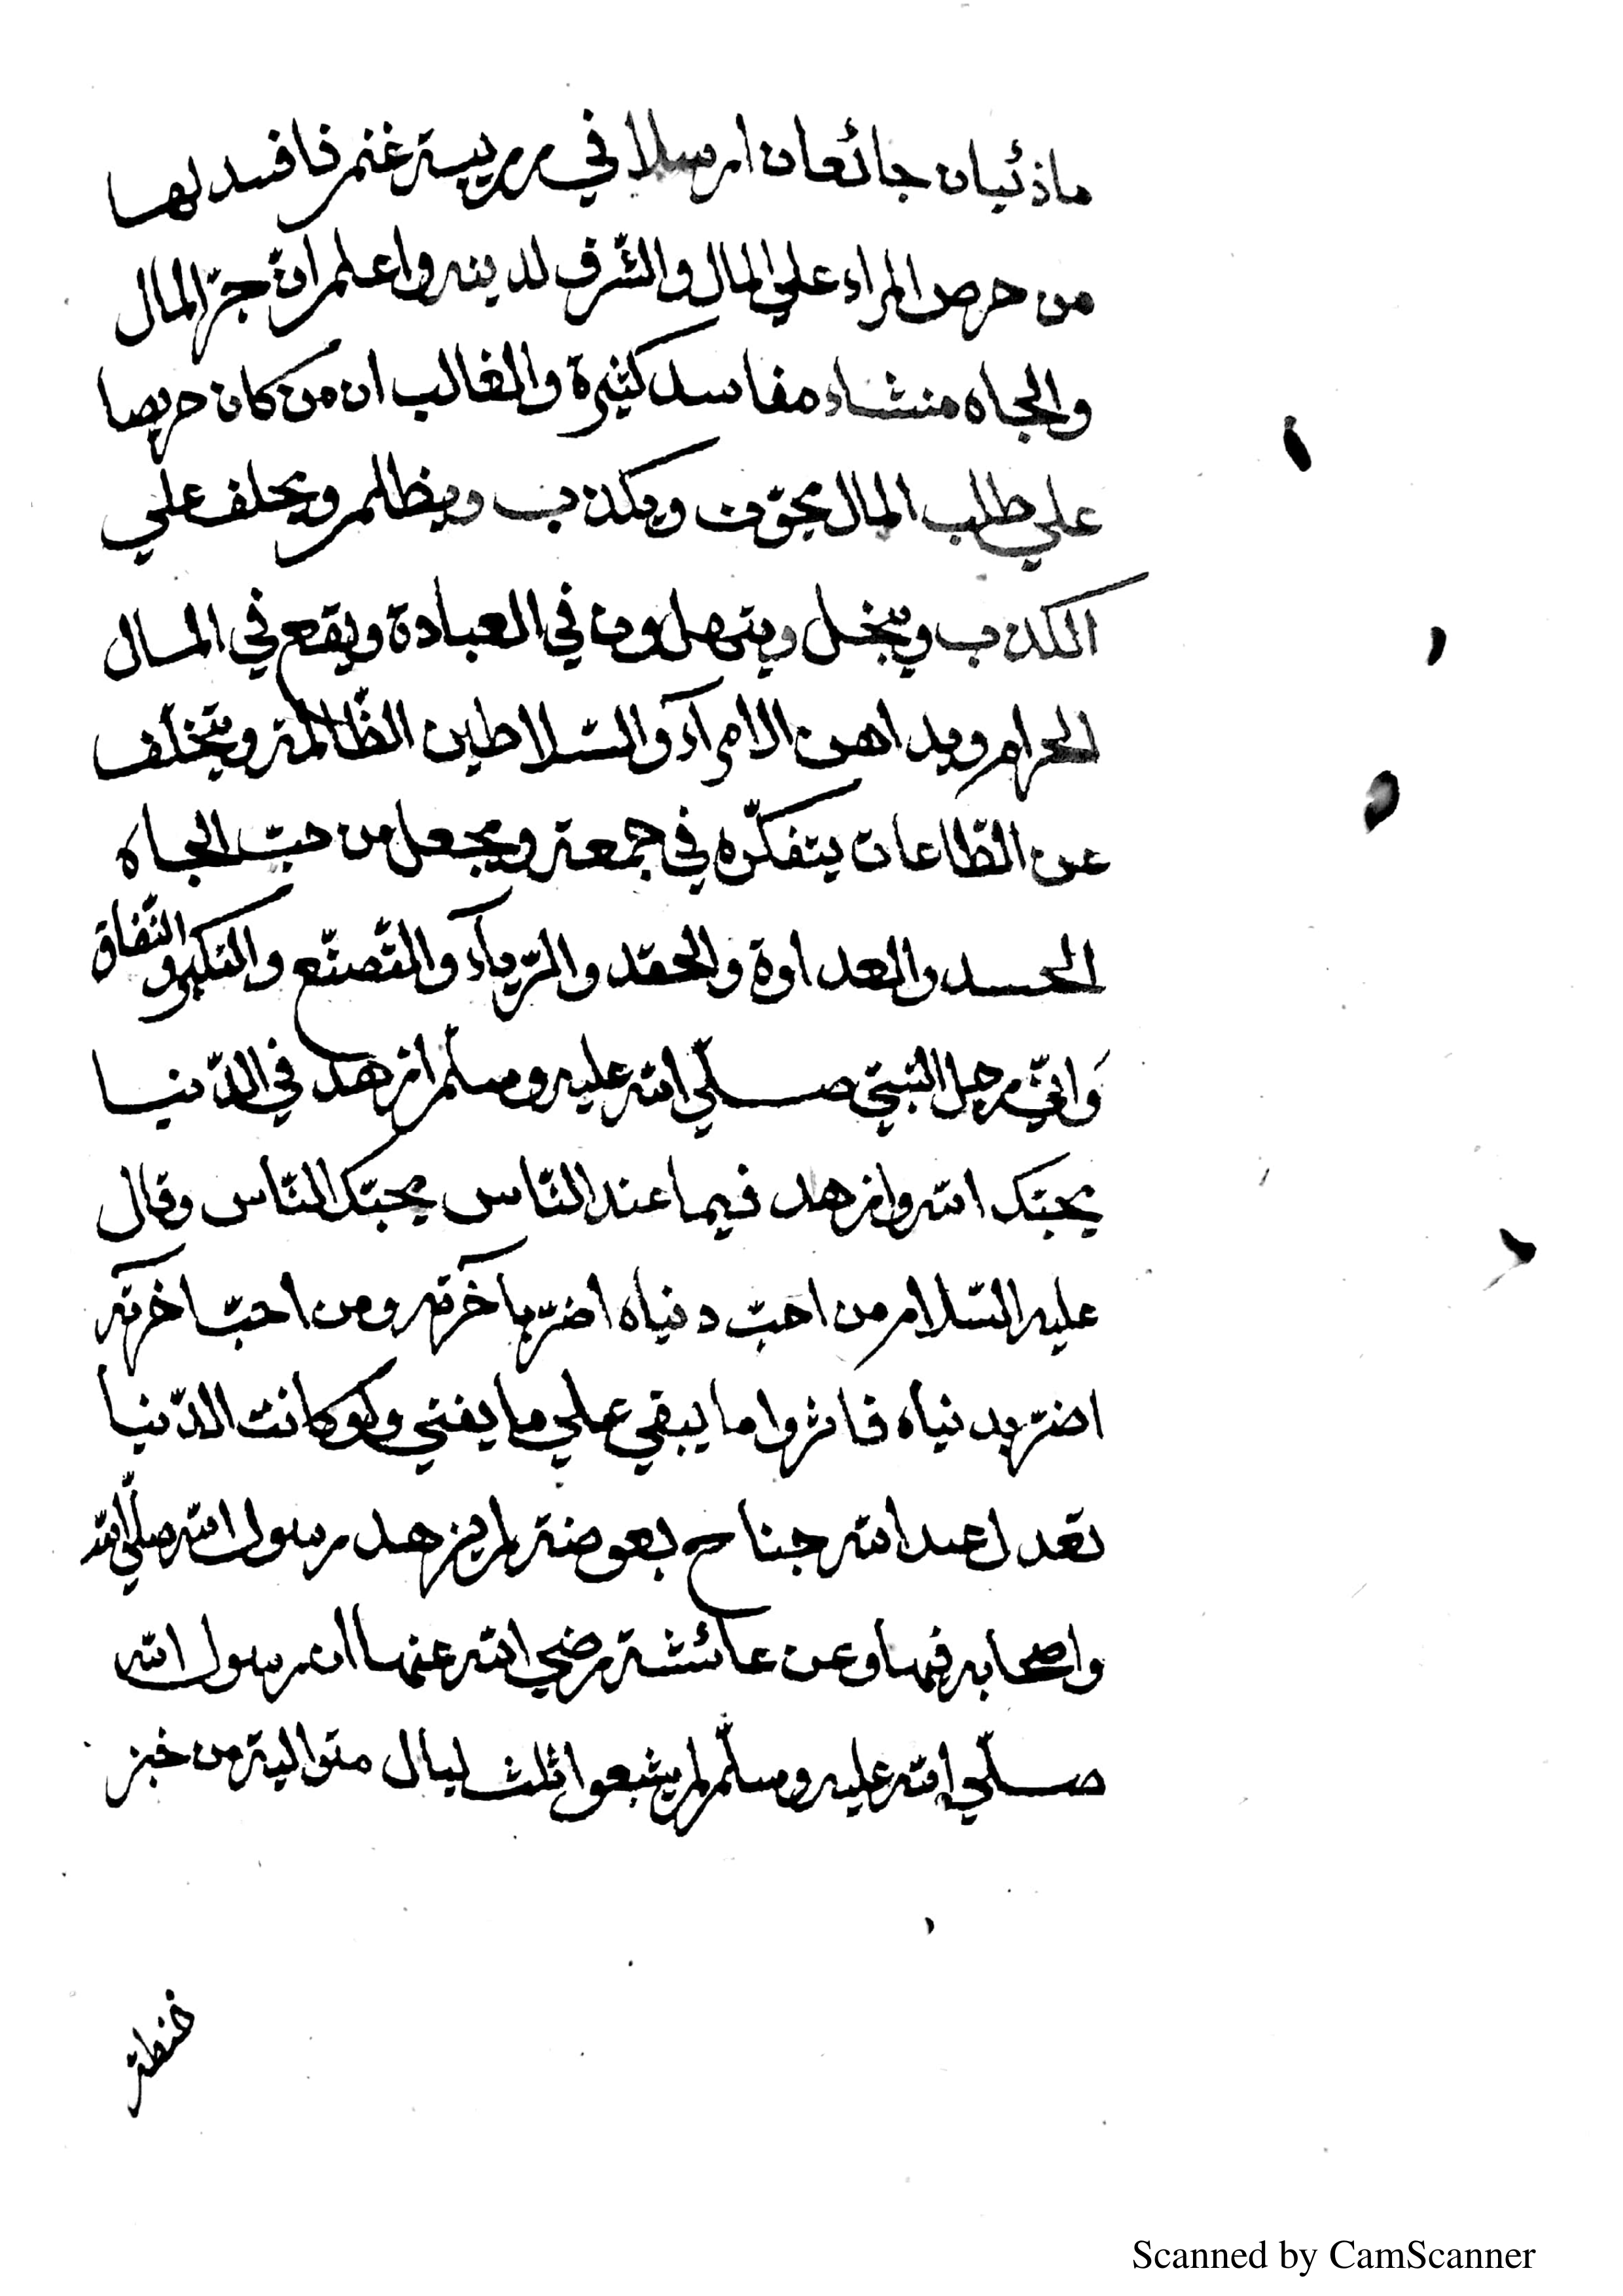 ماذئبان جائعان ارسلا في رريبة غنم فافسد لها
من حرص المراء علي المال والشّرف لدينه واعلم انّ حبّ المال
والجاه منشاء مفاسد كثيرة والغالب ان من كان حريصا
علي طلب المال يخوّن ويكذب ويظلم ويحلف علي
الكذب ويبخل ويتهاون في العبادة ويقع في المال
الحرام ويداهن الامرآء والسّلاطين الظّالمة ويتخلّف
عن الطّاعات يتفكّره في جمعه ويجعل من حبّ الجاه
الحسد والعداوة والحقد والرّيآء والتّصنّع والتكبر والنّفاق
وَاتيٰ رجل النّبيّ صلّي الله عليه وسلّم ازهد في الدّنيا
يحبّك الله وازهد فيما عند النّاس يحبّك النّاس وقال
عليه السّلام من احبّ دنياه اضرّ بآخرته ومن احبّ آخرته
اضرّ بدنياه فاثروا ما يبقي علي ما يفني ولو كانت الدّنيا
تعدل عند الله جناح بعوضة لم يزهد رسول الله صلّي الله
واصحابه فيها وعن عائشة رضي الله عنها ان رسول الله
صلّي الله عليه وسلّم لم يشبعوا ثلث ليال متوالية من خبز
حنطة
Scanned by CamScanner